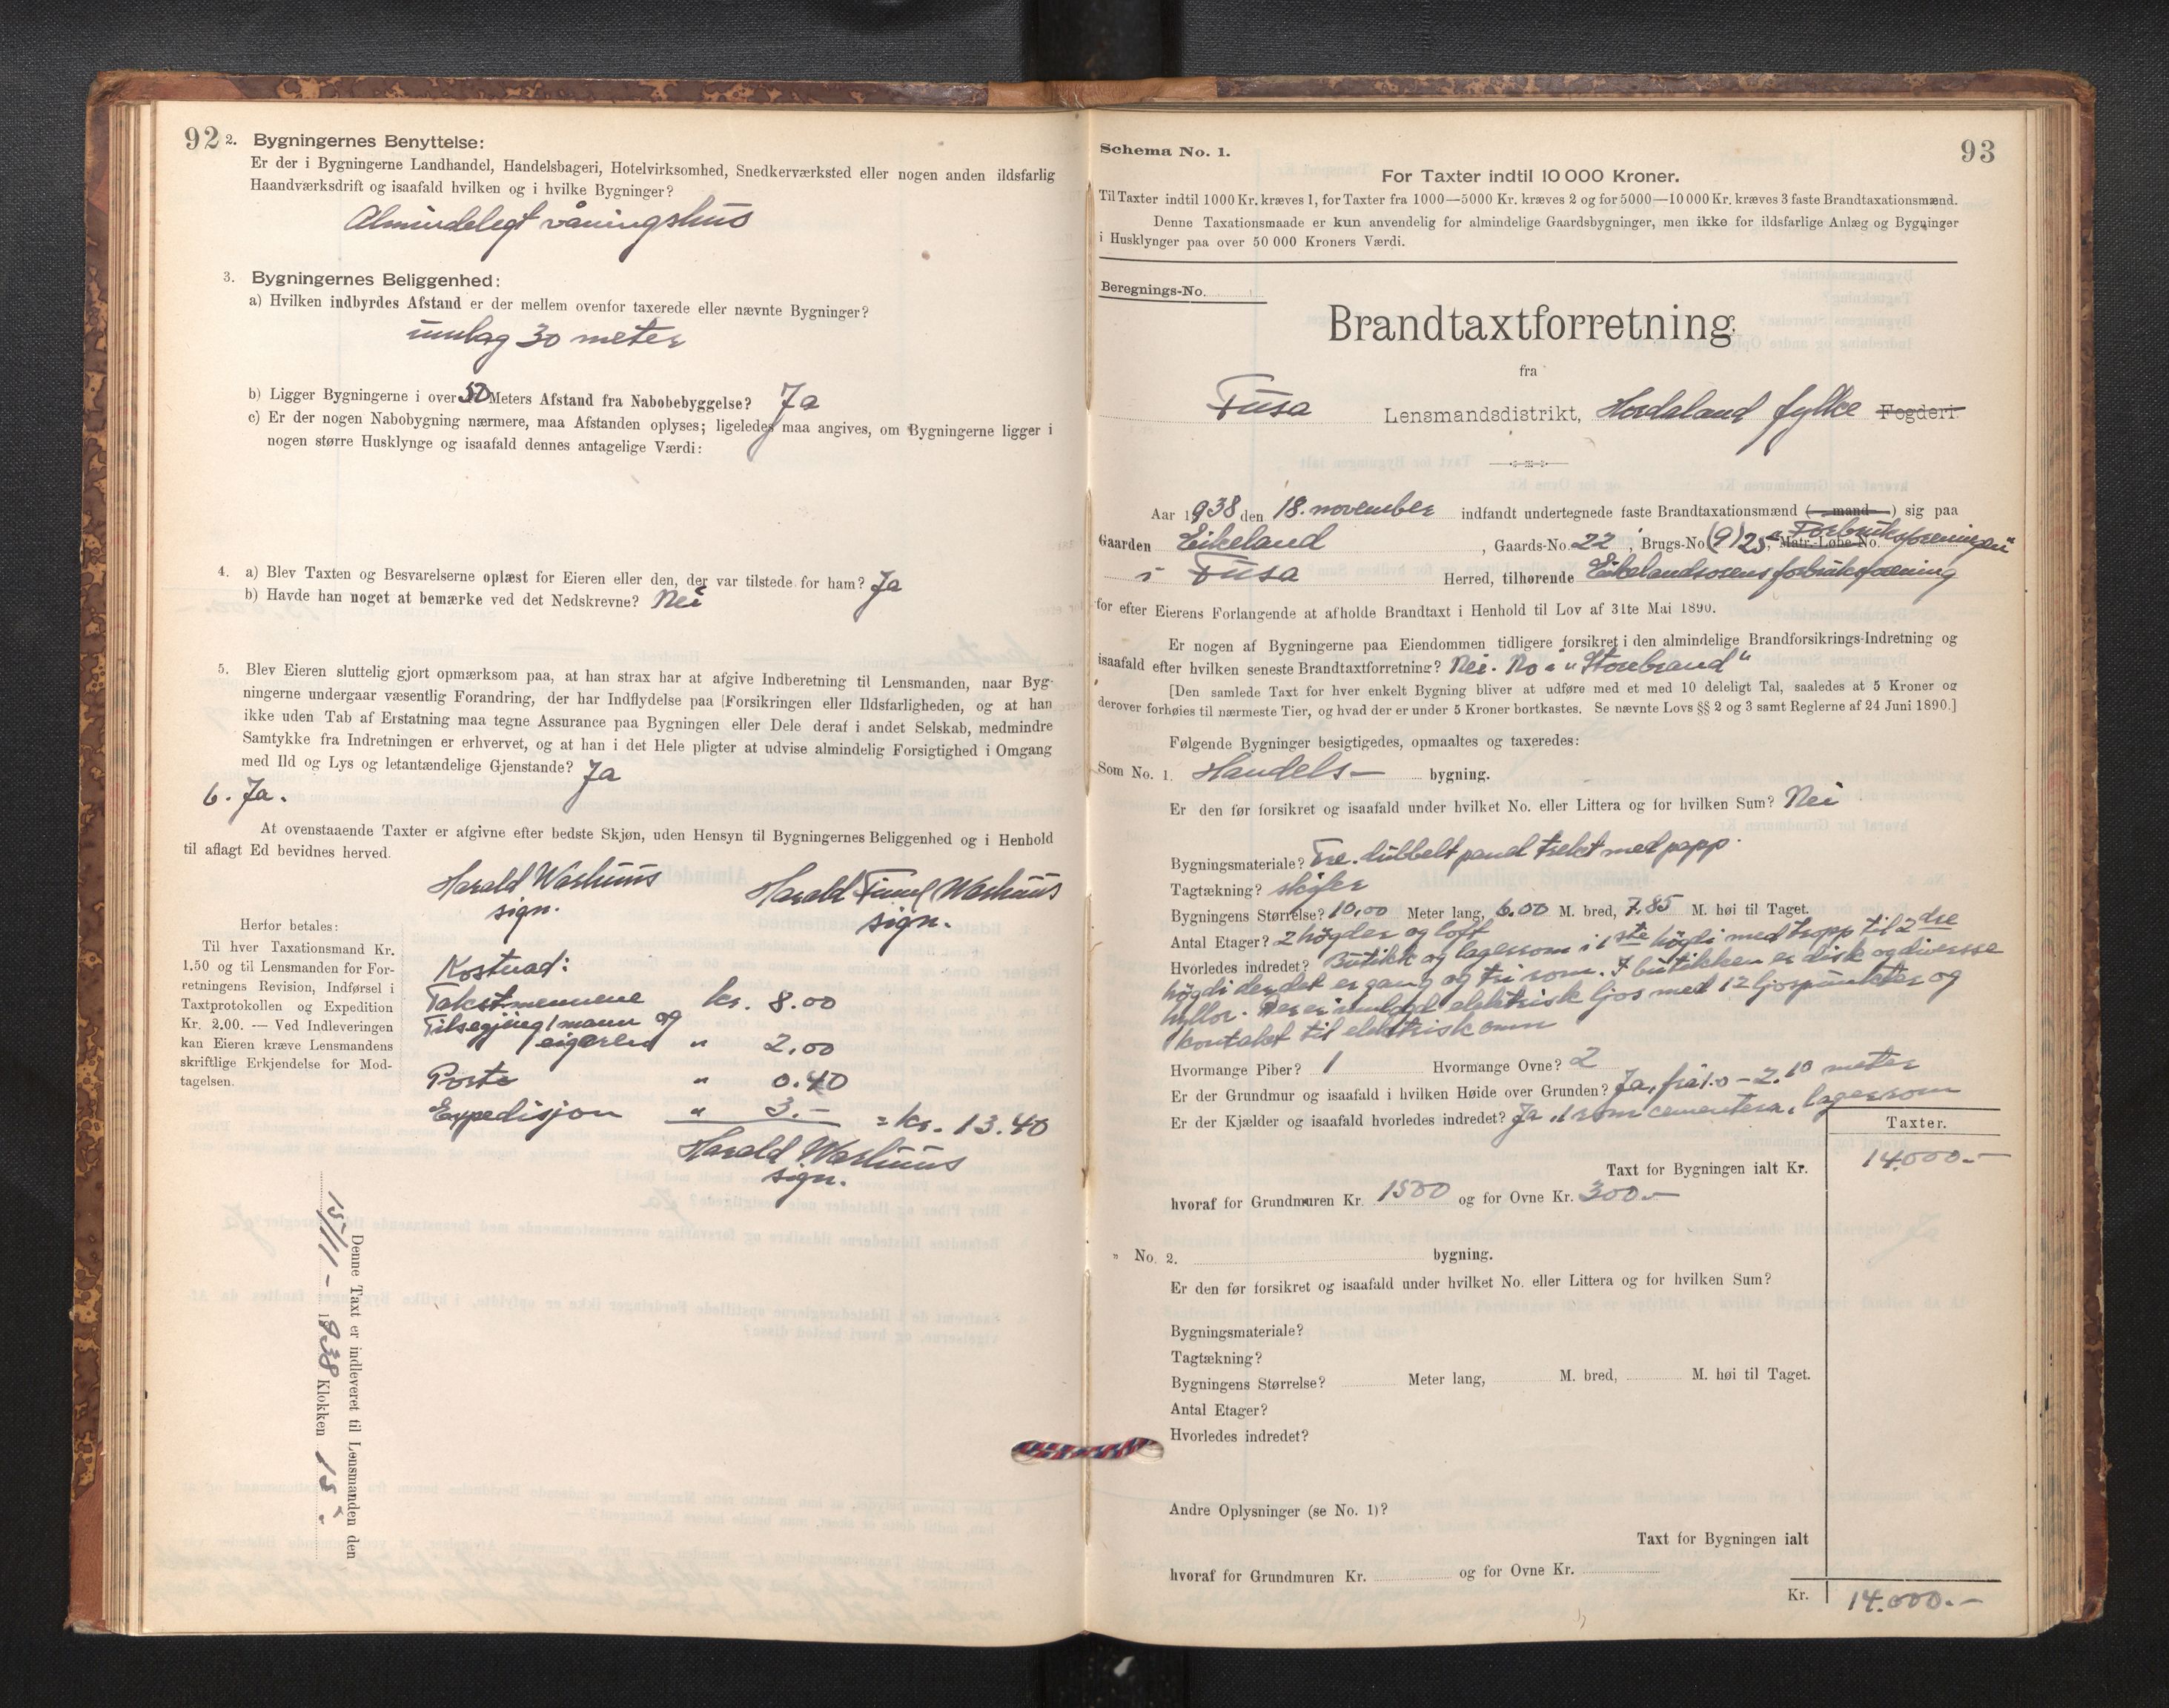 92
2. Bygningernes Benyttelse:
Er der i Bygningerne Landhandel, Handelsbageri, Hotelvirksomhed, Snedkerværksted eller nogen anden ildsfarlig
Haandværksdrift og isaafald hvilken og i hvilke Bygninger?
Almindelegt våningshus
3. Bygningernes Beliggenhed:
a) Hvilken indbyrdes Afstand er der mellem ovenfor taxerede eller nævnte Bygninger?
umlag 30 meter
b) Ligger Bygningerne i over 50 Meters Afstand fra Nabobebyggelse? Ja
c) Er der nogen Nabobygning nærmere, maa Afstanden oplyses; ligeledes maa angives, om Bygningerne ligger i
nogen større Husklynge og isaafald dennes antagelige Værdi:
4. a) Blev Taxten og Besvarelserne oplæst for Eieren eller den, der var tilstede for ham? Ja
b) Havde han noget at bemærke ved det Nedskrevne? Nei
5. Blev Eieren sluttelig gjort opmærksom paa, at han strax har at afgive Indberetning til Lensmanden, naar Byg-
ningerne undergaar væsentlig Forandring, der har Indflydelse paa Forsikringen eller Ildsfarligheden, og at han
ikke uden Tab af Erstatning maa tegne Assurance paa Bygningen eller Dele deraf i andet Selskab, medmindre
Samtykke fra Indretningen er erhvervet, og at han i det Hele pligter at udvise almindelig Forsigtighed i Omgang
med Ild og Lys og letantændelige Gjenstande? Ja
6. Ja.
At ovenstaaende Taxter er afgivne efter bedste Skjøn, uden Hensyn til Bygningernes Beliggenhed og i Henhold
til aflagt Ed bevidnes herved.
Harald Warhuus Harald Warhuus
sign. sign.
Herfor betales:
Til hver Taxationsmand Kr.
1.50 og til Lensmanden for For-
retningens Revision, Indførsel i
Taxtprotokollen og Expedition
Kr. 2.00. — Ved Indleveringen
kan Eieren kræve Lensmandens
skriftlige Erkjendelse for Mod-
tagelsen.
Kostnad:
Takstmennene kr. 8.00
Tilsegjing/mann og
eigaren " 2.00
Porto " 0.40
Expedisjon " 3.- = kr. 13.40
Harald Warhuus
sign.
Denne Taxt er indleveret til Lensmanden den
15/11 - 1938 Klokken 15.
93
Schema No. 1.
For Taxter indtil 10 000 Kroner.
Til Taxter indtil 1000 Kr. kræves 1, for Taxter fra 1000—5000 Kr. kræves 2 og for 5000—10 000 Kr. kræves 3 faste Brandtaxationsmænd.
Denne Taxationsmaade er kun anvendelig for almindelige Gaardsbygninger, men ikke for ildsfarlige Anlæg og Bygninger
i Husklynger paa over 50 000 Kroners Værdi.
Beregnings-No.
Brandtaxtforretning
fra
Fusa Lensmandsdistrikt, Hordaland fylke Fogderi
Aar 1938 den 18. november indfandt undertegnede faste Brandtaxationsmænd (mand) sig paa
Gaarden Eikeland, Gaards-No. 22, Brugs-No (9) 25, Matr.-Løbe-No. "Forbruksforeningen"
i Fusa Herred, tilhørende Eikelandsosens forbruksforening
for efter Eierens Forlangende at afholde Brandtaxt i Henhold til Lov af 31te Mai 1890.
Er nogen af Bygningerne paa Eiendommen tidligere forsikret i den almindelige Brandforsikrings-Indretning og
isaafald efter hvilken seneste Brandtaxtforretning? Nei. No i "Storebrand"
[Den samlede Taxt for hver enkelt Bygning bliver at udføre med et med 10 deleligt Tal, saaledes at 5 Kroner og
derover forhøies til nærmeste Tier, og hvad der er under 5 Kroner bortkastes. Se nævnte Lovs §§ 2 og 3 samt Reglerne af 24 Juni 1890.]
Følgende Bygninger besigtigedes, opmaaltes og taxeredes:
Som No. 1. Handels- bygning.
Er den før forsikret og isaafald under hvilket No. eller Littera og for hvilken Sum? Nei
Bygningsmateriale? Tre. dubbelt panel trekt med papp.
Tagtækning? skifer
Bygningens Størrelse? 10,00 Meter lang, 6.00 M. bred, 7.85 M. høi til Taget.
Antal Etager? 2 høgder og loft
Hvorledes indredet? Butikk og lagerrom i 1ste høgdi med tropp til 2dre
høgdi der det er gang og tri rom. I butikken er disk og diverse
hyllor. Der er innlagt elektrisk ljos med 12 ljospunkter og
kontakt til elektrisk omn
Hvormange Piber? 1 Hvormange Ovne? 2
Er der Grundmur og isaafald i hvilken Høide over Grunden? Ja, frå 1.0 - 2.10 meter
Er der Kjælder og isaafald hvorledes indredet? Ja, 1 rom cementera, lagerrom
Taxter.
Taxt for Bygningen ialt Kr. 14.000.-
hvoraf for Grundmuren Kr. 1500 og for Ovne Kr. 300.-
" No. 2. bygning.
Er den før forsikret og isaafald under hvilket No. eller Littera og for hvilken Sum?
Bygningsmateriale?
Tagtækning?
Bygningens Størrelse? Meter lang, M. bred, M. høi til Taget.
Antal Etager?
Hvorledes indredet?
Andre Oplysninger (se No. 1)?
Taxt for Bygningen ialt
hvoraf for Grundmuren Kr. og for Ovne Kr.
Kr. 14.000.-